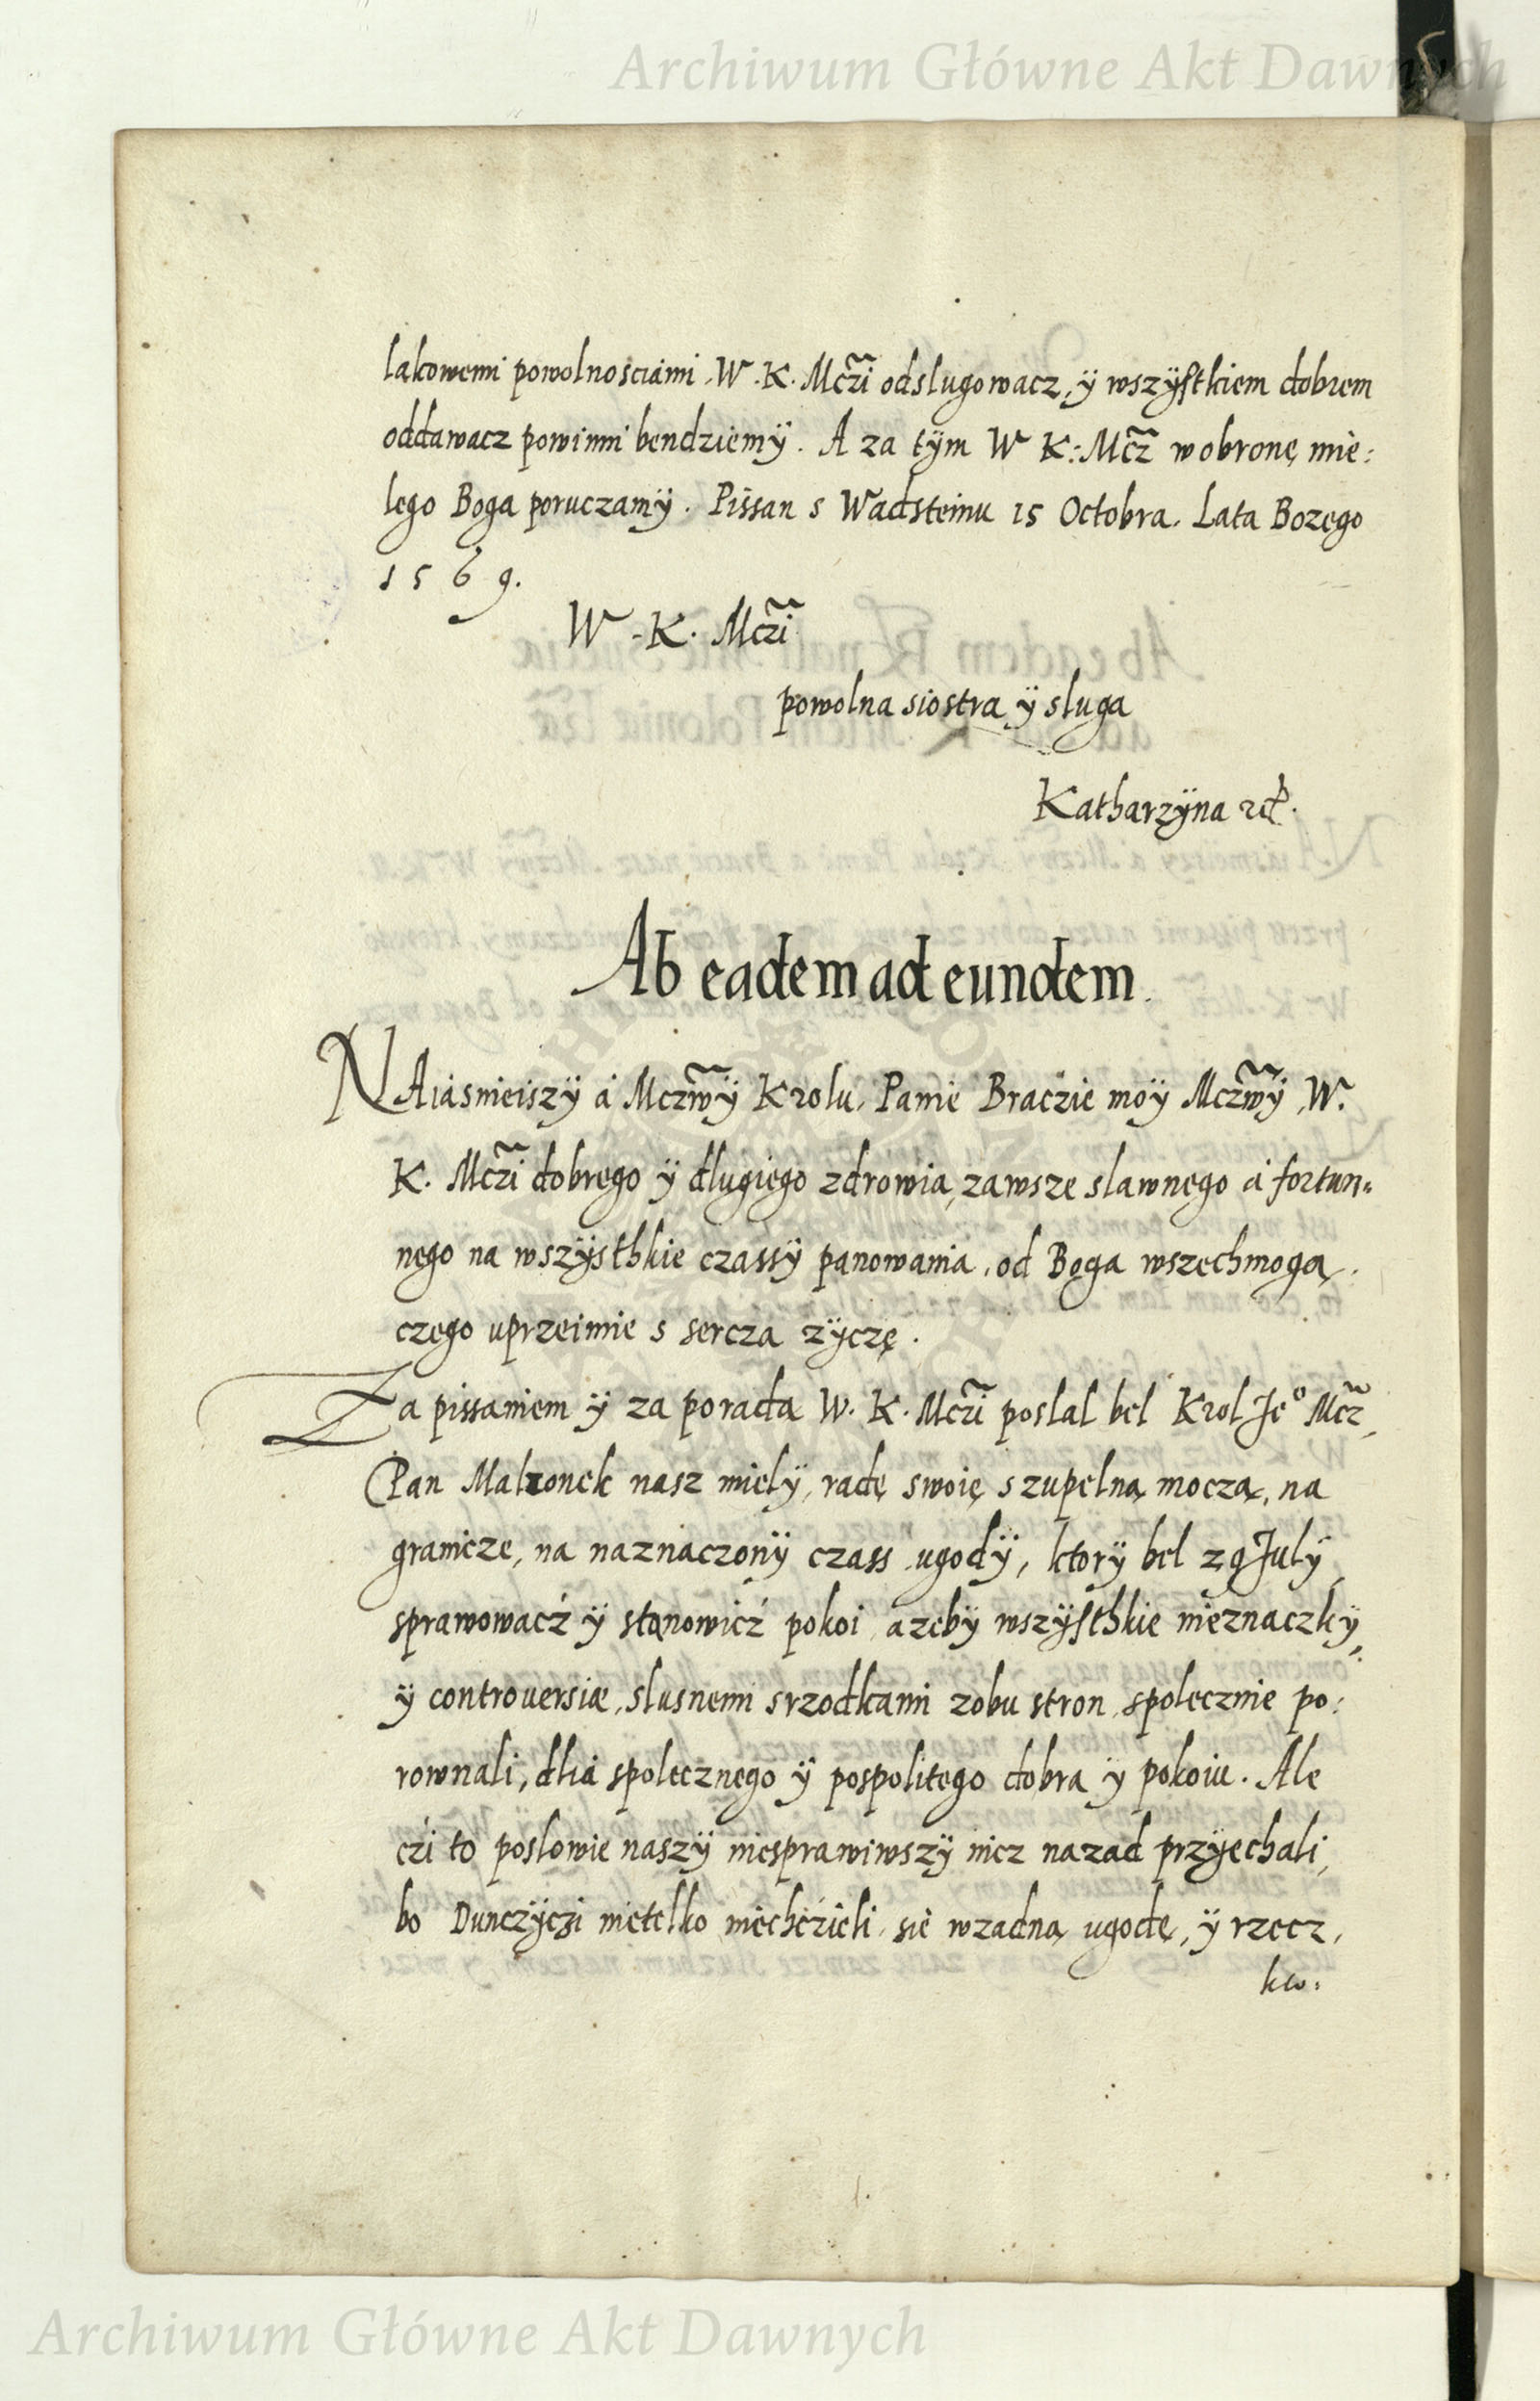 Archiwum Główne Akt Dawnych
lakowemi powolnosciami W. K. Mczi odslugowacz, ÿ wszÿstkiem dobrem
oddawacz powinni bendziemÿ. A za tÿm W K: Mcz w obronę mie:
lego Boga poruczamÿ. Pissan s Wadsteinu 15 Octobra. Lata Bozego
1569.
W. K. Mczi
powolna siostra ÿ sluga
Katharzÿna
Ab eadem ad eundem.
NAiasnieiszÿ á Mczwÿ Krolu, Panie Braczie moÿ Mczwÿ, W.
K. Mczi dobrego ÿ dlugiego zdrowia, zawsze slawnego á fortun=
nego na wszÿsthkie czassÿ panowania, od Boga wszechmogą.
czego uprzeimie s sercza zÿczę.
Za pissaniem ÿ za porada W. K. Mczi poslal bel Krol Jeº Mcz,
Pan Malzonek nasz mielÿ, radę swoię s zupelną moczą, na
granicze, na naznaczonÿ czass ugodÿ, ktorÿ bel 29 Julÿ,
sprawowacź ÿ stanowicź pokoi, azebÿ wszÿsthkie nieznaczkÿ,
ÿ controuersiæ, slusnemi srzodkami zobu stron, spolecznie po:
rownali, dliá spolecznego ÿ pospolitego dobra ÿ pokoiu. Ale
czi to poslowie naszÿ niesprawiwszÿ nicz nazad przÿechali,
bo Dunczÿczi nietelko niechczieli sie wzadną ugodę, ÿ rzecz,
kw:
Archiwum Główne Akt Dawnych